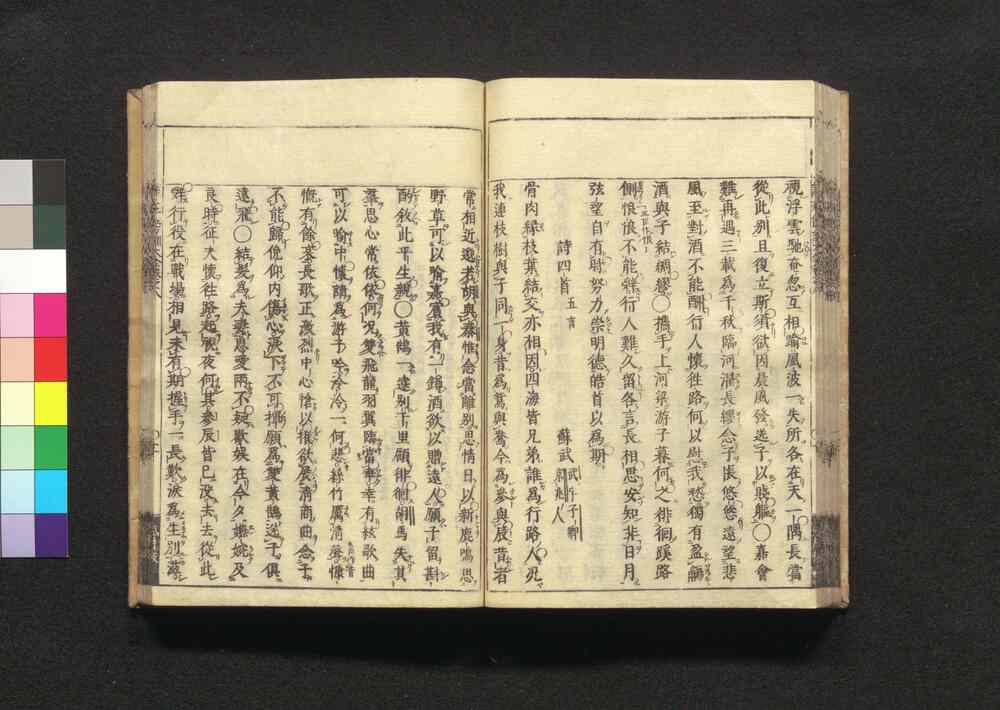 視浮雲馳奄忽互相踰風波一失所各在天一隅長當
從此別且復立斯須欲因晨風發送子以賤軀○嘉會
難再遇三載為千秋臨河濯長纓念子悵悠悠遠望悲
風至對酒不能酬行人懷往路何以慰我愁獨有盈觴
酒與子結綢繆○攜手上河梁游子暮何之徘徊蹊路
側悢悢不能辭行人難久留各言長相思安知非日月
弦望自有時努力崇明德皓首以為期
詩四首 五言 蘇武
骨肉緣枝葉結交亦相因四海皆兄弟誰為行路人況
我連枝樹與子同一身昔為鴛與鴦今為參與辰昔者
常相近邈若胡與秦惟念當離別恩情日以新鹿鳴思
野草可以喻嘉賓我有一罇酒欲以贈遠人願子留斟
酌敘此平生親○黃鵠一遠別千里顧徘徊胡馬失其
羣思心常依依何況雙飛龍羽翼臨當乖幸有絃歌曲
可以喻中懷請為游子吟泠泠一何悲絲竹厲清聲慷
慨有餘哀長歌正激烈中心愴以摧欲展清商曲念子
不能歸俛仰內傷心淚下不可揮願為雙黃鵠送子俱
遠飛○結髮為夫妻恩愛兩不疑歡娛在今夕嬿婉及
良時征夫懷往路起視夜何其參辰皆已没去去從此
辭行役在戰場相見未有期握手一長歎淚為生別滋